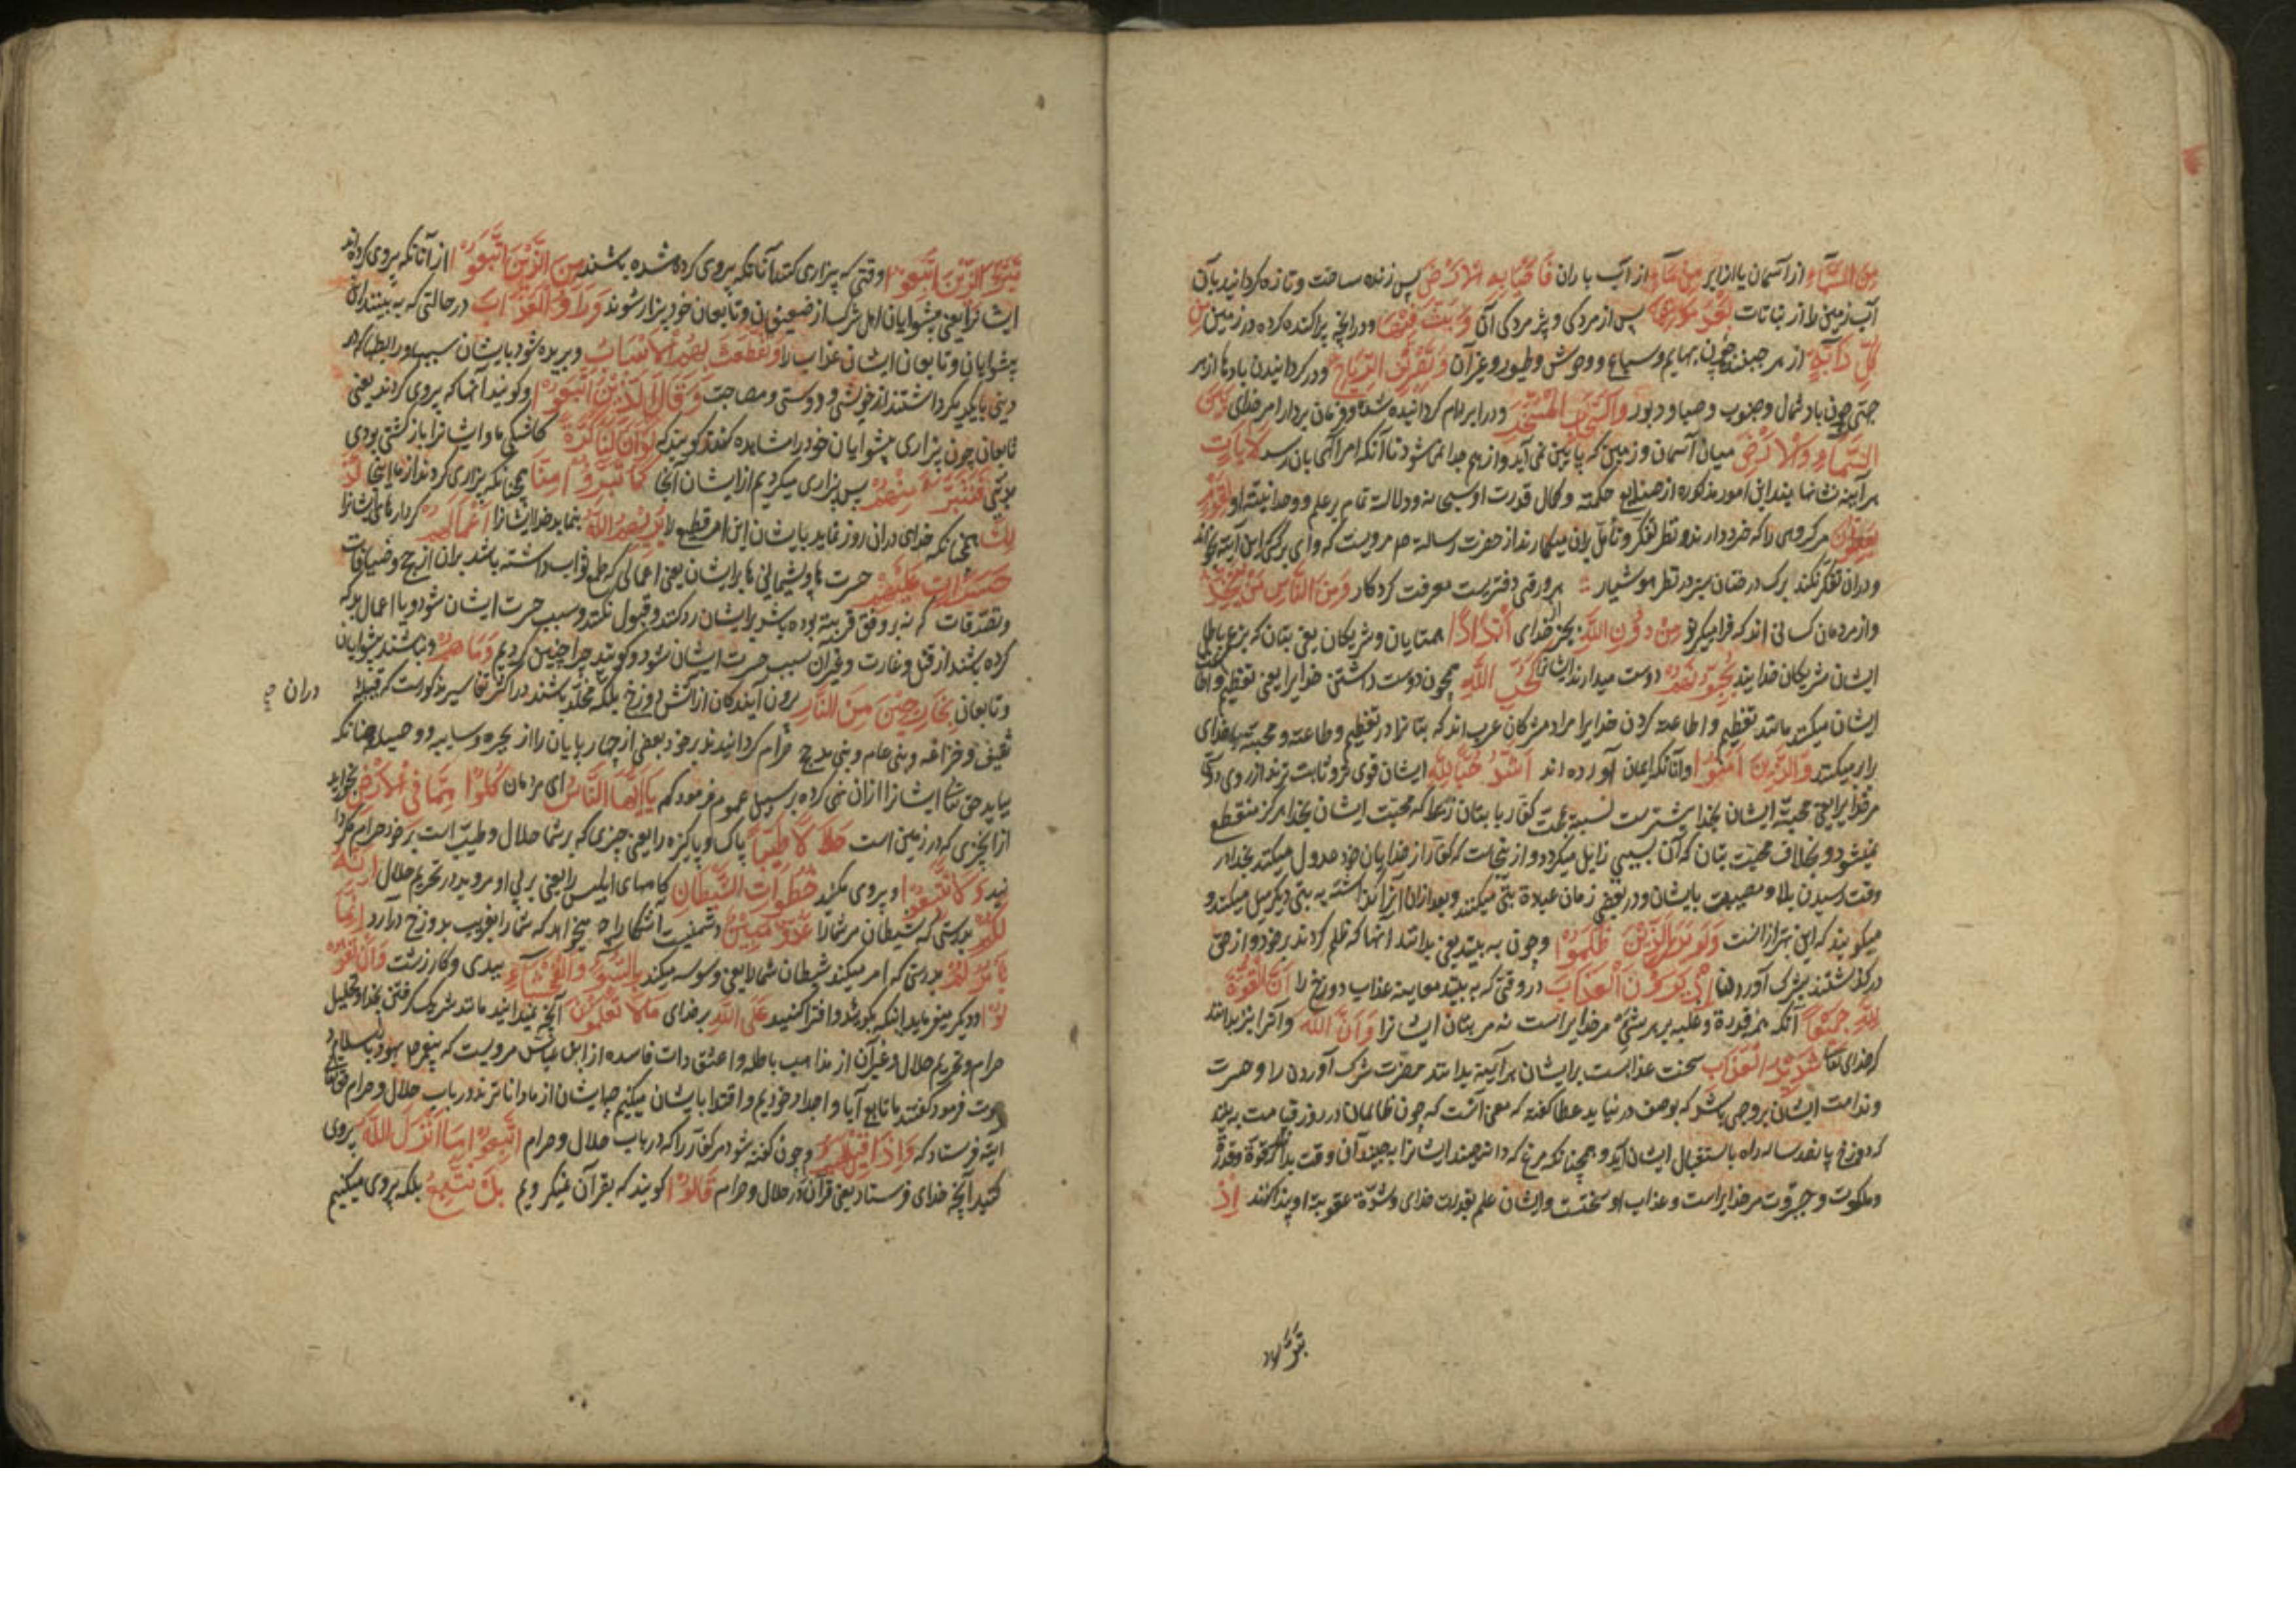 مِنَ السَّمَاءِ از آسمان یا از ابر مِنْ مَاءٍ از آب باران فَاَحْیَا بِهِ الْاَرْضَ پس زنده ساخت و تازه کردانید بآن
آب زمین را از نباتات بَعْدَ مَوْتِهَا پس از مردکی و پژمردکی آن وَ بَثَّ فِیْهَا و درانچه پراکنده کرده در زمین مِنْ
کُلِّ دَابَّةٍ از هر جنبنده چون بهایم و سباع و وحوش و طیور و غیرآن وَ تَصْرِیْفِ الرِّیَاحِ و در کردانیدن بادها از هر
جهتی چون باد شمال و جنوب و صبا و دبور وَالسَّحَابِ الْمُسَخَّرِ و در ابر رام کردانیده شده و فرمان بردار امر خدای بَیْنَ
السَّمَاءِ وَالْاَرْضِ میان آسمان و زمین که پایین نمی آید و از هم جدا نمی شود تا آنکه امر الهی بان رسد لَاٰیَاتٍ
هر آینه نشانها یند این امور مذکوره از صنایع حکمة و کمال قدرت او سبحانه و دلالة تام بر علم و وحدانیته او لِقَوْمٍ
یَعْقِلُوْنَ مر کروهی را که خرد دارند و نظر تفکر و تأمل بران میکمارند از حضرت رسالة ص مرویست که وای بر کسی که این آیة بخواند
و دران تفکر نکند برک درختان سبز در نظر هوشیار هر ورقی دفتریست معرفت کردکار وَمِنَ النَّاسِ مَنْ یَتَّخِذُ
و از مردمان کسانی اند که فرا میکیرند مِنْ دُوْنِ اللهِ بجز از خدای اَنْدَادًا همتایان و شریکان یعنی بتان که بزعم باطل
ایشان شریکان خدایند یُحِبُّوْنَهُمْ دوست میدارند ایشانرا کَحُبِّ اللهِ همچون دوست داشتن خدایرا یعنی تعظیم و اطاعت
ایشان میکنند مانند تعظیم و اطاعة کردن خدایرا مراد مشرکان عرب اند که بتانرا در تعظیم و طاعة و محبة با خدای
برابر میکنند وَالَّذِیْنَ اٰمَنُوْا و آنانکه ایمان آورده اند اَشَدُّ حُبًّا لِلّٰهِ ایشان قوی تر و ثابت ترند از روی دوستی
مر خدایرا یعنی محبة ایشان بخدا بیشترست نسبة بمحبت کفار با بتان زیرا که محبت ایشان بخدا هرکز منقطع
نمیشود و بخلاف محبت بتان که آن بسببی زایل میکردد و از ینجاست که کفار از خدایان خود عدول میکنند بخدا در
وقت رسیدن بلا و مصیبت بایشان و در بعضی زمان عبادة بتی میکنند و بعد ازان آنرا کذاشته به بتی دیکر میل میکنند و
میکویند که این بهتر از انست وَلَوْ یَرَی الَّذِیْنَ ظَلَمُوْا و چون به بینند یعنی بدانند انها که ظلم کردند بر خود و از حق
در کذشتند بشرک آوردن اِذْ یَرَوْنَ الْعَذَابَ در وقتی که به بینند معاینه عذاب دوزخ را اَنَّ الْقُوَّةَ
لِلّٰهِ جَمِیْعًا آنکه همه قدرة و غلبه بر هر شیء مر خدایراست نه مر بتان ایشانرا وَاَنَّ اللهَ و آنرا نیز بدانند
که خدای تعالی شَدِیْدُ الْعَذَابِ سخت عذابست بر ایشان هر آینه بدانند مضرت شرک آوردن را و حسرت
و ندامت ایشان بروجهی باشد که بوصف در نیاید عطا کفته که معنی آنست که چون ظالمان در روز قیامت به بینند
که دوزخ پانصد ساله راه باستقبال ایشان آید و همچنانکه مرغ که دانه چیند ایشانرا بچیند آن وقت بدانند که قوة و قدرة
و ملکوت و جبروت مر خدایراست و عذاب او سختست و ایشان علم بقدرت خدای و شدة عقوبة او پیدا کنند اِذْ
تَبَرَّأَ
تَبَرَّأَ الَّذِیْنَ اتُّبِعُوْا وقتی که بیزاری کنند آنانکه پیروی کرده شده باشند مِنَ الَّذِیْنَ اتَّبَعُوْا از آنانکه پیروی کرده اند
ایشانرا یعنی پیشوایان اهل شرک از ضعیفان و تابعان خود بیزار شوند وَرَاَوُا الْعَذَابَ در حالتی که به بینند ان
پیشوایان و تابعان ایشان عذاب را وَتَقَطَّعَتْ بِهِمُ الْاَسْبَابُ و بریده شود بایشان سببها و رابطها که در
دنیی با یکدیکر داشتند از خویشی و دوستی و مصاحبت وَقَالَ الَّذِیْنَ اتَّبَعُوْا و کویند آنها که پیروی کردند یعنی
تابعان چون بیزاری پیشوایان خود را مشاهده کنند کویند که لَوْ اَنَّ لَنَا کَرَّةً کاشکی ما و ایشانرا باز کشتی بودی
بدنیی فَنَتَبَرَّأَ مِنْهُمْ پس بیزاری میکردیم از ایشان آنجا کَمَا تَبَرَّءُوْا مِنَّا همچنانکه بیزاری کردند از ما اینجا کَذٰ
لِکَ همچنانکه خدای دران روز نماید بایشان این امر قطیع را یُرِیْهِمُ اللهُ بنماید خدا ایشانرا اَعْمَالَهُمْ کردارهای ایشانرا
حَسَرَاتٍ عَلَیْهِمْ حسرت ها و پشیمانی ها بر ایشان یعنی اعمالی که طمع ثواب داشته باشند بران از حج و ضیافات
و تصدّقات که نه بر وفق قربة بوده باشد بر ایشان رد کنند و قبول نکنند و سبب حسرت ایشان شود و یا اعمال بد که
کرده باشند از قتل و غارت و غیرآن سبب حسرت ایشان شود و کویند چرا چنین کردیم وَمَا هُمْ و نباشند پیشوایان
و تابعان بِخَارِجِیْنَ مِنَ النَّارِ برون آیندکان از آتش دوزخ بلکه مخلّد باشند در اکثر تفاسیر مذکورست که قبیلهٔ
دران
ثقیف و خزاعه و بنی عامر و بنی مدلج حرام کردانیدند بر خود بعضی از چهارپایان را از بحیره و سایبه و وصیله چنانکه
بیاید حق تعالی ایشانرا ازان نهی کرده بر سبیل عموم فرمود که یَا اَیُّهَا النَّاسُ ای مردمان کُلُوْا مِمَّا فِی الْاَرْضِ بخورید
از انچیزی که در زمین است حَلَالًا طَیِّبًا پاک و پاکیزه را یعنی چیزی که بر شما حلال و طیّب است بر خود حرام مکردا
نید وَلَا تَتَّبِعُوْا و پیروی مکنید خُطُوَاتِ الشَّیْطَانِ کامهای ابلیس را یعنی بر پی او مروید در تحریم حلال اِنَّهُ
لَکُمْ بدرستی که شیطان مر شما را عَدُوٌّ مُبِیْنٌ دشمنیست آشکارا چه میخواهد که شما را بفریب بدوزخ درآرد اِنَّمَا
یَأْمُرُکُمْ بدرستی که امر میکند شیطان شما را یعنی وسوسه میکند بِالسُّوْءِ وَالْفَحْشَاءِ ببدی و کار زشت وَاَنْ تَقُوْ
لُوْا و دیکر میفرماید اینکه بکویید و افترا کنید عَلَی اللهِ بر خدای مَا لَا تَعْلَمُوْنَ آنچه نمیدانید مانند شریک کرفتن بخدا و تحلیل
حرام و تحریم حلال و غیرآن از مذاهب باطله و اعتقادات فاسده از ابن عباس مرویست که پیغمبر ص یهود باسلام د
عوت فرمود کفتند ما تابع آبا و اجداد خودیم و اقتدا بایشان میکنیم چه ایشان از ما داناتر ند در باب حلال و حرام حق تعالی
آیة فرستاد که وَاِذَا قِیْلَ لَهُمُ و چون کفته شود مر کفار را که در باب حلال و حرام اتَّبِعُوْا مَا اَنْزَلَ اللهُ پیروی
کنید آنچه خدای فرستاد یعنی قرآن در حلال و حرام قَالُوْا کویند که بقرآن نمیکرویم بَلْ نَتَّبِعُ بلکه پیروی میکنیم